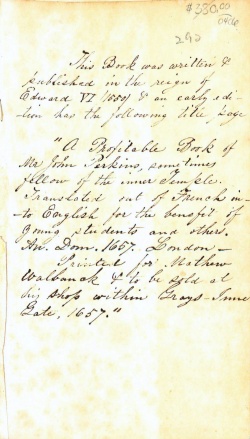 $330.00
04/26
292
This Book was written &
published in the reign of
Edward VI & an early edi-
tion has the following title page
"A Profitable Book of
Mr John Perkins, sometimes
fellow of the inner Temple.
Translated out of French in-
to English for the benefit of
young students and others.
An. Dom. 1657. London—
Printed for Mathew
Walbanck & to be sold at
his shop within Grays-Inne
Gate, 1657."